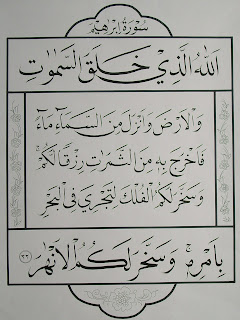 سورة إبراهيم
الله الذي خلق السموت
والارض وانزل من السماء ماء
فاخرج به من الثمرت رزقا لكم
وسخر لكم الفلك لتجري في البحر
بامره وسخر لكم الانهر ٣٢